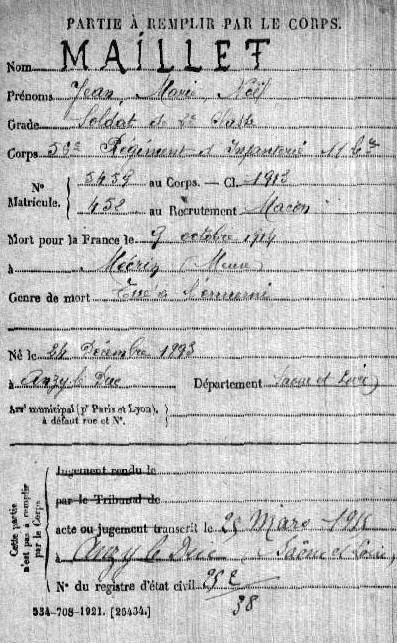 PARTIE À REMPLIR PAR LE CORPS.
Nom MAILLET
Prénoms Jean Marie Noël
Grade Soldat de 2e
Corps Régiment d'Infanterie
No Matricule. { 5459 au Corps. — Cl. 1913
458 au Recrutement Macon
Mort pour la France le 9 octobre 1914
à (Meuse)
Genre de mort Tué à l'ennemi
Né le 24 Décembre 1893
à Anzy le Duc Département Saone et Loire
Arrt municipal (pr Paris et Lyon), à défaut rue et No.
Cette partie n'est pas à remplir par le Corps
Jugement rendu le
par le Tribunal de
acte ou jugement transcrit le 25 Mars 1915
à Anzy le Duc (Saône et Loire)
No du registre d'état civil
38
534-708-1921. [26434.]